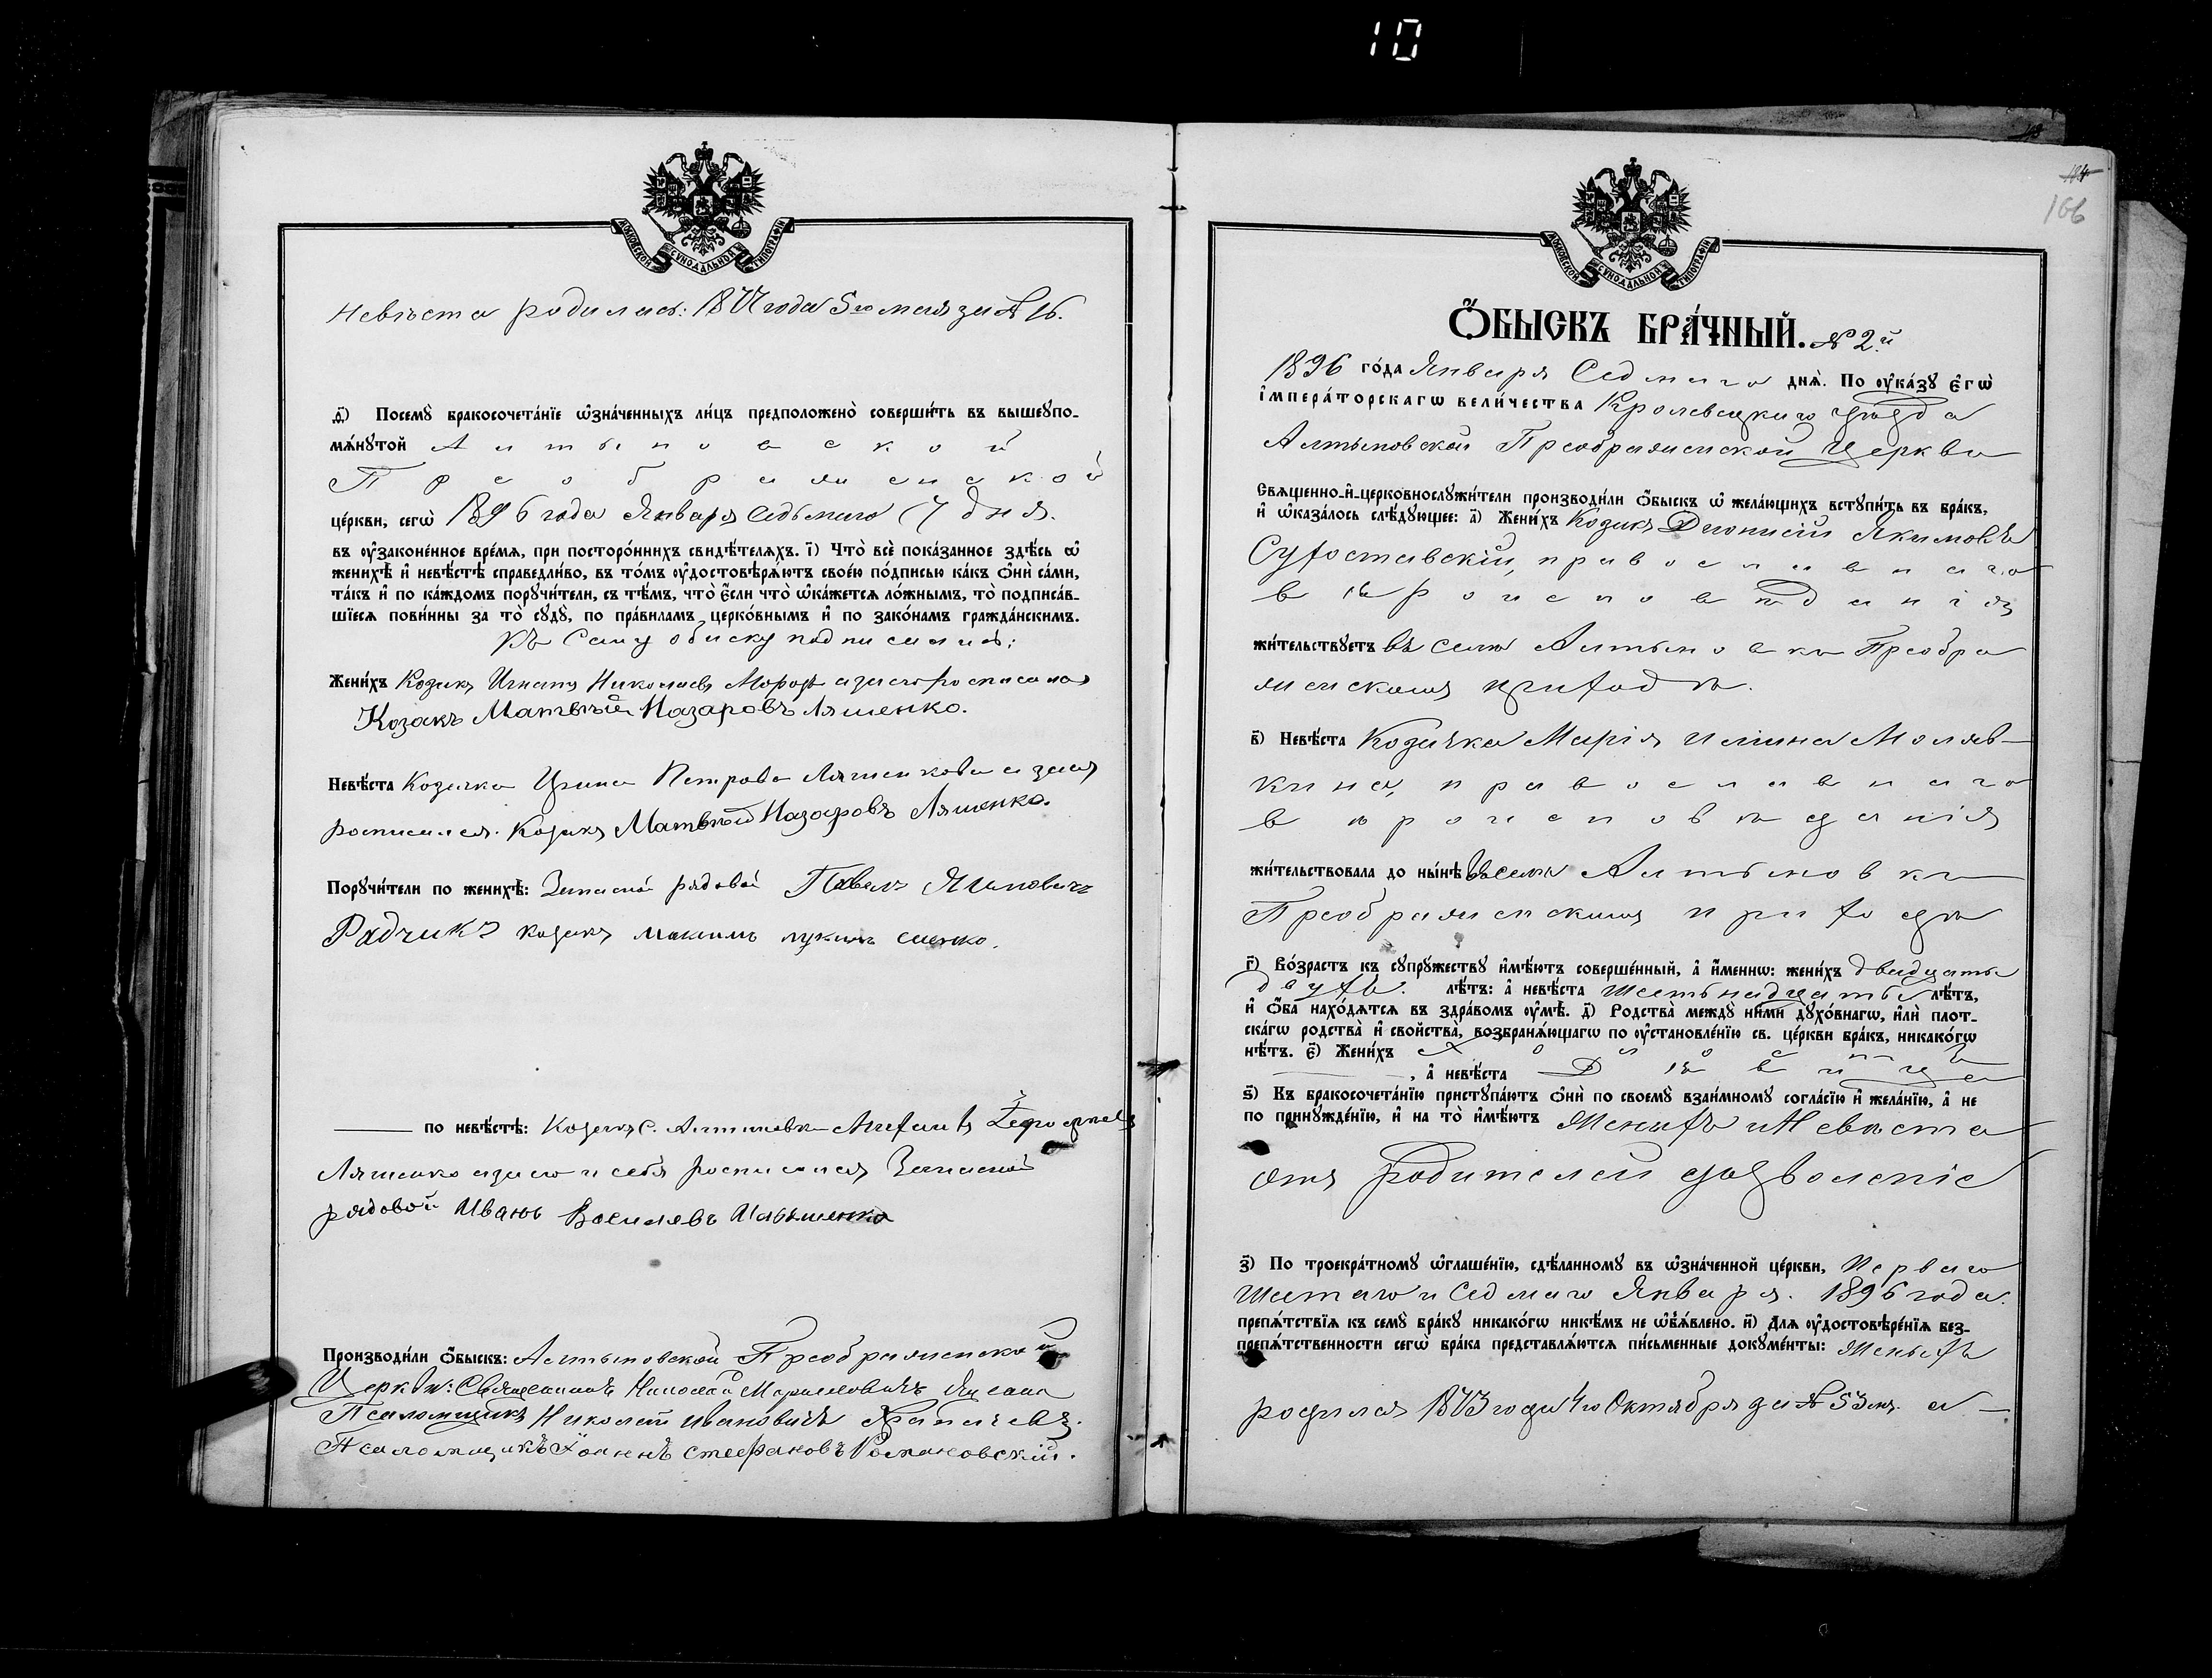 10
МОСКОВСКОЙ СѴНОДАЛЬНОЙ ТИПОГРАФІИ
Невѣста родилась: 1877 года 5го мая за № 16.
д҃і) Посемꙋ̀ бракосочета́нїе ѡ҆зна́ченныхъ ли́цъ предположено̀ соверши́ть въ вышеꙋпо-
мѧ́нꙋтой Алтыновской
Преображенской
це́ркви, сегѡ̀ 1896 года Января седьмаго (7 дня.
въ ᲂу҆зако́ненное вре́мя, при посторо́ннихъ свидѣ́телѧхъ. і҃) Что̀ всѐ пока́занное здѣ́сь ѡ҆
женихѣ̀ и҆ невѣ́стѣ справедли́во, въ то́мъ ᲂу҆достовѣрѧ́ютъ свое́ю по́дписью ка́къ ѻ҆нѝ са́ми,
та́къ и҆ по ка́ждомъ порꙋчи́тели, съ тѣ́мъ, что̀ є҆́сли что̀ ѡ҆ка́жется ло́жнымъ, то̀ подписа́в-
шїеся пови́нны за то̀ сꙋдꙋ̀, по пра́виламъ церко́внымъ и҆ по зако́намъ гражда́нскимъ.
Къ сему обыску подписались:
Жени́хъ Козакъ Игнатъ Николаевъ Морозъ а за его росписался
Козакъ Матвѣй Назаровъ Ляшенко.
Невѣ́ста Козачка Ирина Петрова Ляшенкова а за ея
росписался. Козакъ Матвѣй Назаровъ Ляшенко.
Порꙋчи́тели по женихѣ̀: Запасной рядовой Павелъ
Радчикъ козакъ максимъ
по невѣ́стѣ: Козакъ с. Алтыновки
Ляшенко а за его и себя росписался Запасной
рядовой Иванъ Василиевъ
Производи́ли ѻ҆́быскъ: Алтыновской Преображенской
Церкви: Священникъ Николай
Псаломщикъ Николай Ивановичъ
Псаломщикъ Іоаннъ Стефановъ Романовский.
166
МОСКОВСКОЙ СѴНОДАЛЬНОЙ ТИПОГРАФІИ
Ѻ҆́БЫСКЪ БРА́ЧНЫЙ. № 2й
1896 го́да Января Седмаго днѧ̀. По ᲂу҆ка́зꙋ є҆гѡ̀
і҆мпера́торскагѡ вели́чества Кролевецкаго уѣзда
Алтыновской Преображенской Церкви
Свѧще́нно-и҆-церковнослꙋжи́тели производи́ли ѻ҆́быскъ ѡ҆ жела́ющихъ встꙋпи́ть въ бра́къ,
и҆ ѡ҆каза́лось слѣ́дꙋющее: а҃) Жени́хъ Козакъ Дионисій Якимовъ
Сухоставскій, православнаго
вѣроисповѣданія
жи́тельствꙋетъ въ селѣ Алтыновкѣ Преобра
женскомъ приходѣ.
в҃) Невѣ́ста Козачка Марія Илiина Моляв-
кина, православнаго
вѣроисповѣданія
жи́тельствовала до ны́нѣ въ селѣ Алтыновкѣ
Преображенскомъ приходѣ
г҃) Во́зрастъ къ сꙋпрꙋ́жествꙋ и҆мѣ́ютъ соверше́нный, а҆ и҆́меннѡ: жени́хъ двадцать
двухъ. лѣ́тъ: а҆ невѣ́ста шестьнадцать лѣ́тъ,
и҆ ѻ҆́ба нахо́дятся въ здра́вомъ ᲂу҆мѣ̀. д҃) Родства̀ междꙋ̀ ни́ми дꙋхо́внагѡ, и҆лѝ плот-
ска́гѡ родства̀ и҆ свойства̀, возбранѧ́ющагѡ по ᲂу҆становле́нїю св. це́ркви бра́къ, никако́гѡ
нѣ́тъ. є҃) Жени́хъ холостъ
, а҆ невѣ́ста Дѣвица
ѕ҃) Къ бракосочета́нїю пристꙋпа́ютъ ѻ҆нѝ по своемꙋ̀ взаи́мномꙋ согла́сїю и҆ жела́нїю, а҆ не
по принꙋжде́нїю, и҆ на то̀ и҆мѣ́ютъ Женихъ и Невѣста
отъ родителей дозволеніе
з҃) По троекра́тномꙋ ѡ҆глаше́нїю, сдѣ́ланномꙋ въ ѡ҆зна́ченной це́ркви, Перваго
Шестаго и Седмаго Января. 1896 года.
препѧ́тствїя къ семꙋ̀ бра́кꙋ никако́гѡ никѣ́мъ не ѡ҆б̾ѧ́влено. и҃) Длѧ ᲂу҆достовѣре́нїя без-
препѧ́тственности сегѡ̀ бра́ка представлѧ́ются пи́сьменные докꙋме́нты: Женихъ
родился 1873 года 4го Октября за № 53мъ. а —